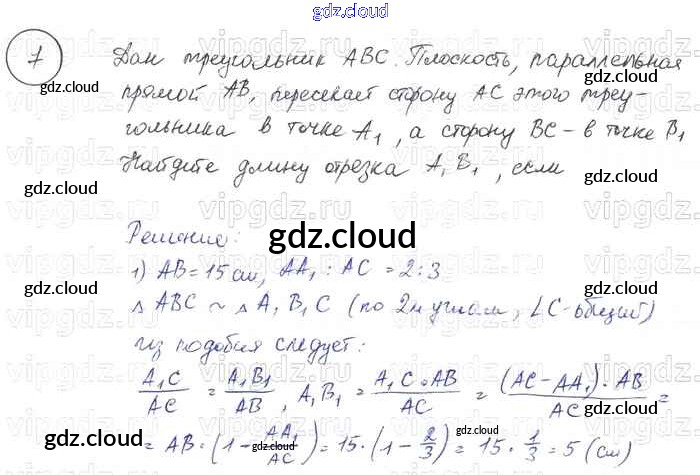 gdz.cloud
7 Дан треугольник ABC. Плоскость, параллельная
прямой AB, пересекает сторону AC этого треу-
гольника в точке A₁, а сторону BC - в точке B₁
Найдите длину отрезка A₁B₁, если
Решение:
gdz.cloud
1) AB = 15 см, AA₁ : AC = 2:3
△ ABC ~ △ A₁B₁C (по 2м углам, ∠C-общий)
из подобия следует:
A₁C/AC = A₁B₁/AB, A₁B₁ = A₁C · AB/AC = (AC - AA₁) · AB/AC =
= AB · (1 - AA₁/AC) = 15 · (1 - 2/3) = 15 · 1/3 = 5 (см)